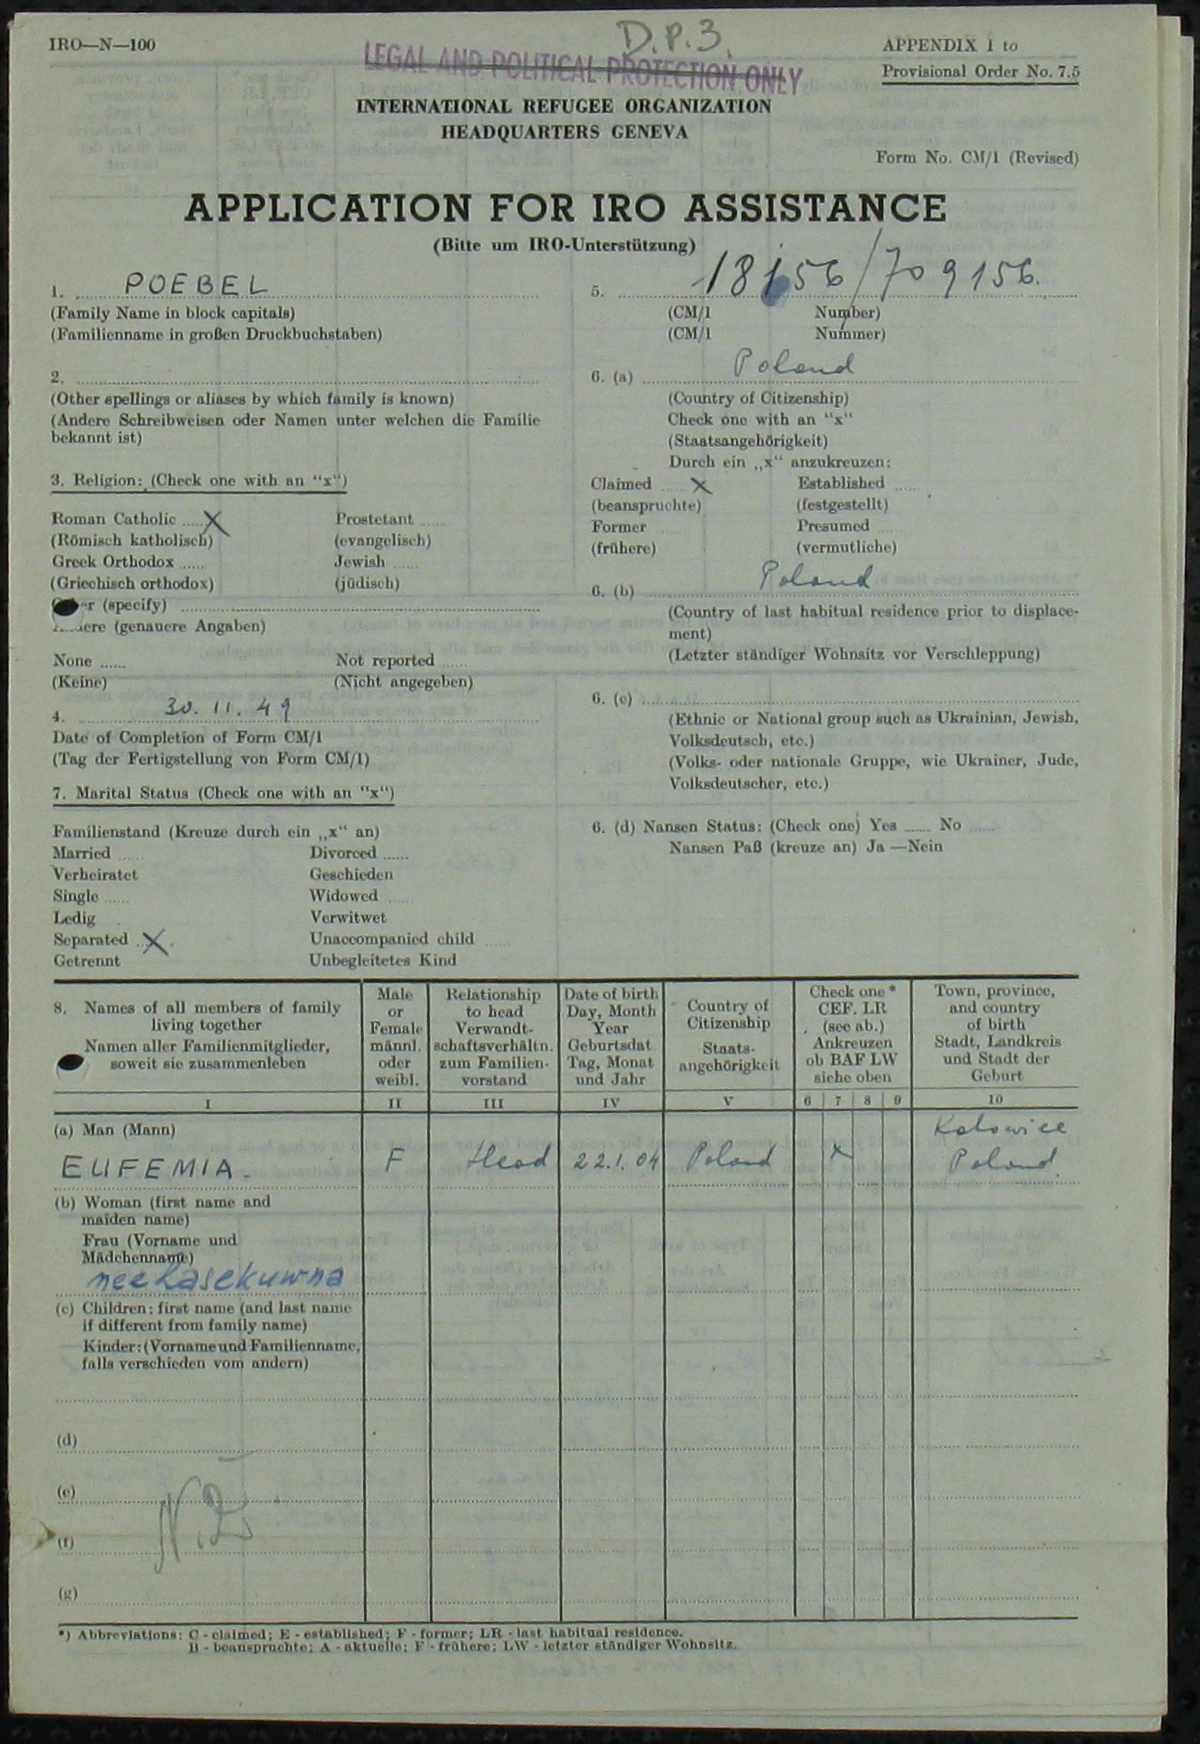 IRO—N—100
D.P.3.
LEGAL AND POLITICAL PROTECTION ONLY
APPENDIX 1 to
Provisional Order No. 7.5
INTERNATIONAL REFUGEE ORGANIZATION
HEADQUARTERS GENEVA
Form No. CM/1 (Revised)
APPLICATION FOR IRO ASSISTANCE
(Bitte um IRO-Unterstützung)
1. POEBEL
(Family Name in block capitals)
(Familienname in großen Druckbuchstaben)
2.
(Other spellings or aliases by which family is known)
(Andere Schreibweisen oder Namen unter welchen die Familie
bekannt ist)
3. Religion: (Check one with an "x")
Roman Catholic X Prostetant
(Römisch katholisch) (evangelisch)
Greek Orthodox Jewish
(Griechisch orthodox) (jüdisch)
(specify)
(genauere Angaben)
None Not reported
(Keine) (Nicht angegeben)
4. 30. 11. 49
Date of Completion of Form CM/1
(Tag der Fertigstellung von Form CM/1)
7. Marital Status (Check one with an "x")
Familienstand (Kreuze durch ein „x“ an)
Married Divorced
Verheiratet Geschieden
Single Widowed
Ledig Verwitwet
Separated X Unaccompanied child
Getrennt Unbegleitetes Kind
5. 18156/709156.
(CM/1 Number)
(CM/1 Nummer)
6. (a) Poland
(Country of Citizenship)
Check one with an "x"
(Staatsangehörigkeit)
Durch ein „x“ anzukreuzen:
Claimed X Established
(beanspruchte) (festgestellt)
Former Presumed
(frühere) (vermutliche)
6. (b) Poland
(Country of last habitual residence prior to displace-
ment)
(Letzter ständiger Wohnsitz vor Verschleppung)
6. (c)
(Ethnic or National group such as Ukrainian, Jewish,
Volksdeutsch, etc.)
(Volks- oder nationale Gruppe, wie Ukrainer, Jude,
Volksdeutscher, etc.)
6. (d) Nansen Status: (Check one) Yes No
Nansen Paß (kreuze an) Ja —Nein
8. Names of all members of family
living together
Namen aller Familienmitglieder,
soweit sie zusammenleben
Male
or
Female
männl.
oder
weibl.
Relationship
to head
Verwandt-
schaftsverhältn.
zum Familien-
vorstand
Date of birth
Day, Month
Year
Geburtsdat.
Tag, Monat
und Jahr
Country of
Citizenship
Staats-
angehörigkeit
Check one *
CEF. LR
(see ab.)
Ankreuzen
ob BAF LW
siehe oben
Town, province,
and country
of birth
Stadt, Landkreis
und Stadt der
Geburt
I II III IV V 6 7 8 9 10
(a) Man (Mann) Katowice
EUFEMIA. F Head 22.1.04 Poland X Poland
(b) Woman (first name and
maiden name)
Frau (Vorname und
Mädchenname)
nee
(c) Children: first name (and last name
if different from family name)
Kinder: (Vorname und Familienname,
falls verschieden vom andern)
(d)
(e)
(f)
(g)
*) Abbreviations: C - claimed; E - established; F - former; LR - last habitual residence.
B - beanspruchte; A - aktuelle; F - frühere; LW - letzter ständiger Wohnsitz.